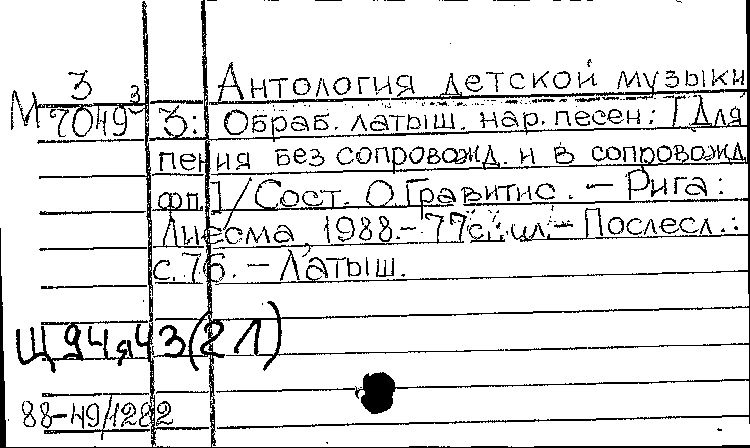 З Антология детской музыки
М 7049³ 3: Обраб. латыш. нар. песен: [Для
пения без сопровожд. и в сопровожд.
фп.] / Сост. О. Гравитис. – Рига:
Лиесма, 1988. – 77с.: ил. – Послесл.:
с. 76. – Латыш.
Щ94я43(2Л)
88-49/1282